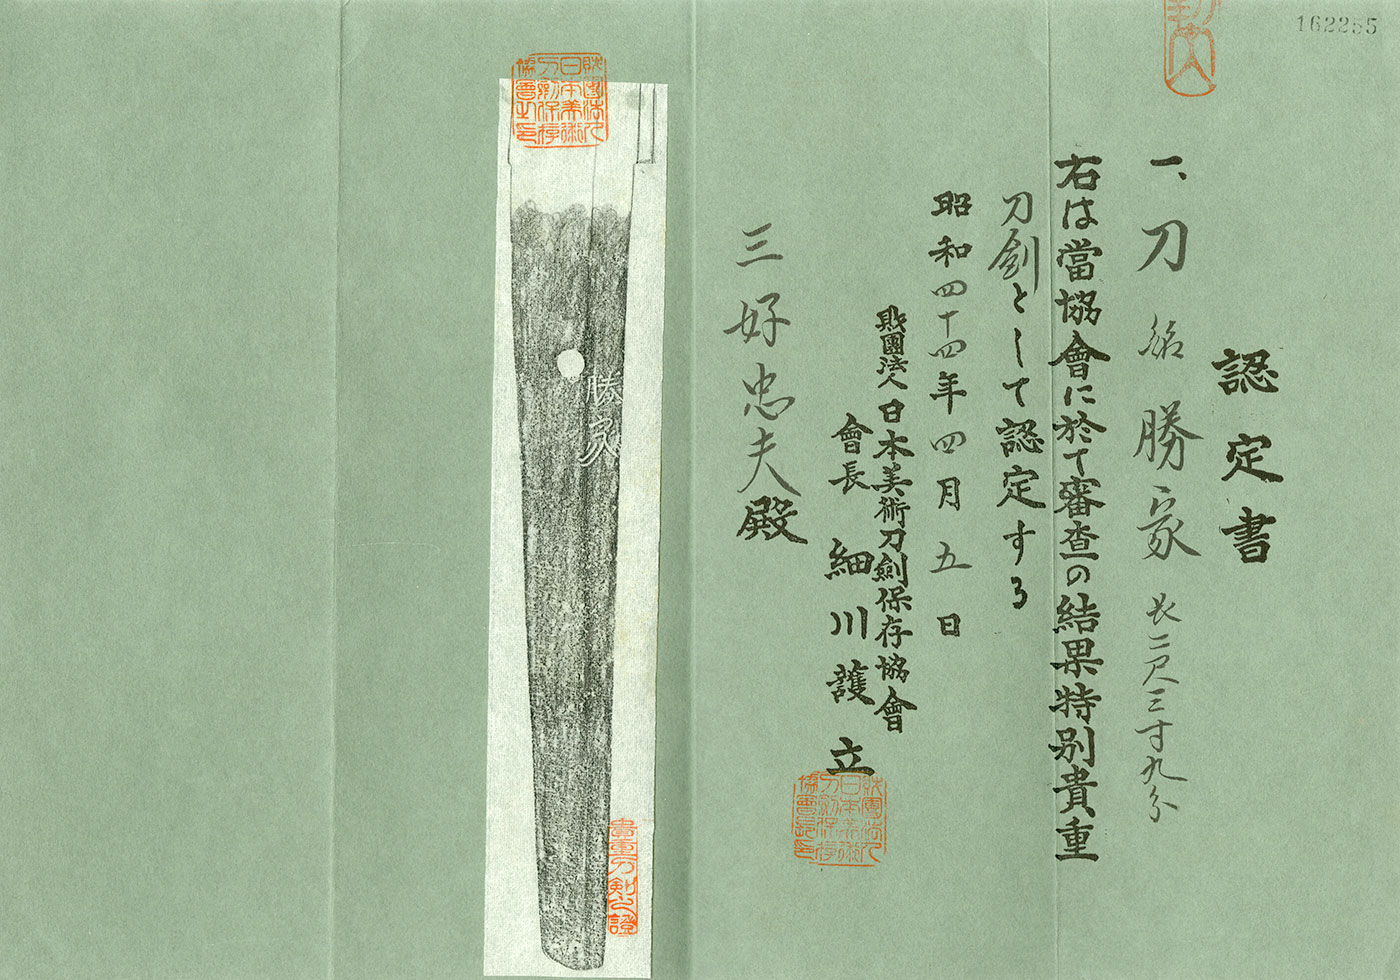 162255
認定書
一、刀 銘 勝家 長二尺三寸九分
右は當協會に於て審査の結果特別貴重
刀劍として認定する
昭和四十四年四月五日
財團法人日本美術刀劍保存協會
會長 細川護立
三好忠夫殿
財團法人日本美術刀劍保存協會長印
財團法人日本美術刀劍保存協會之印
勝家
貴重刀剣之證